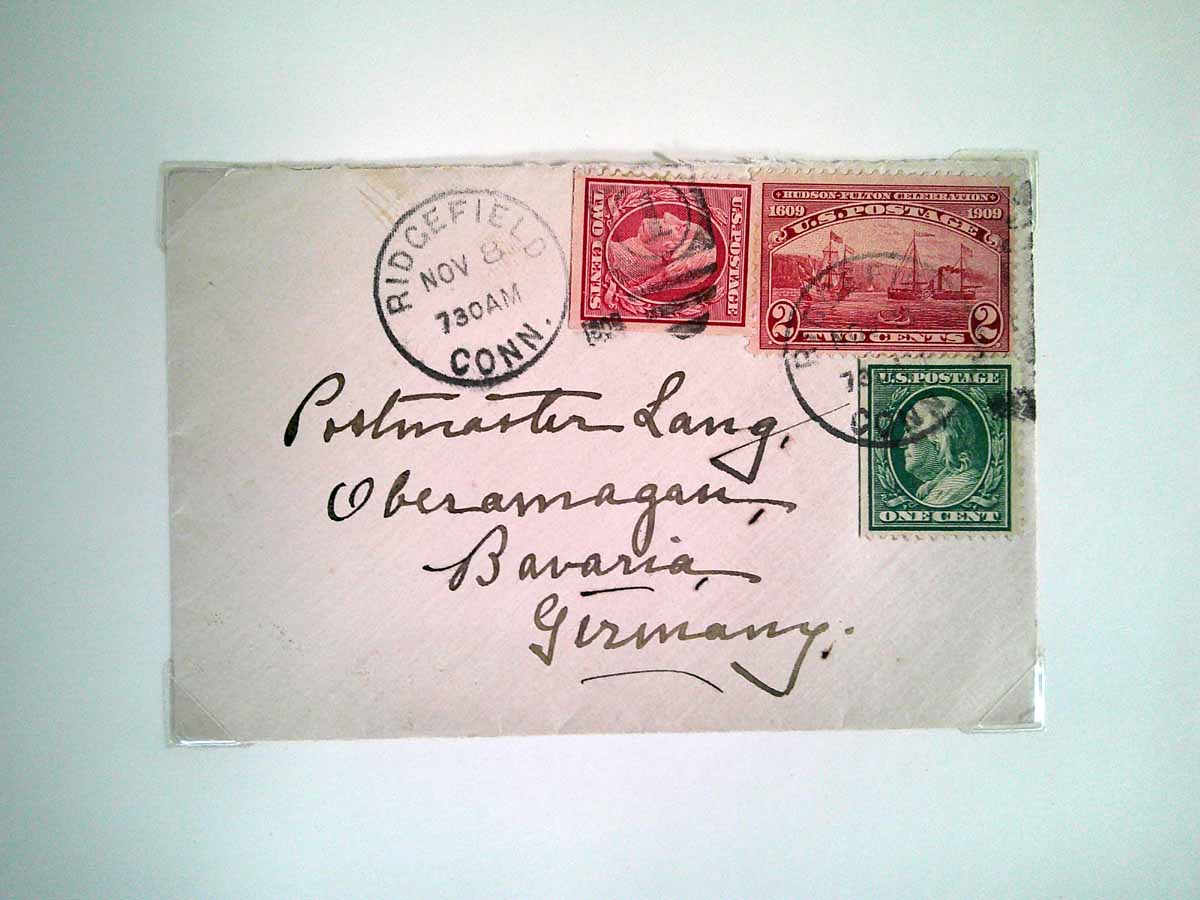 RIDGEFIELD
NOV 8
730AM
CONN.
U.S. POSTAGE
TWO CENTS
HUDSON-FULTON CELEBRATION
1609 1909
U.S. POSTAGE
2 TWO CENTS 2
CON
U.S. POSTAGE
ONE CENT
Postmaster Lang,
Oberamagau,
Bavaria,
Germany.